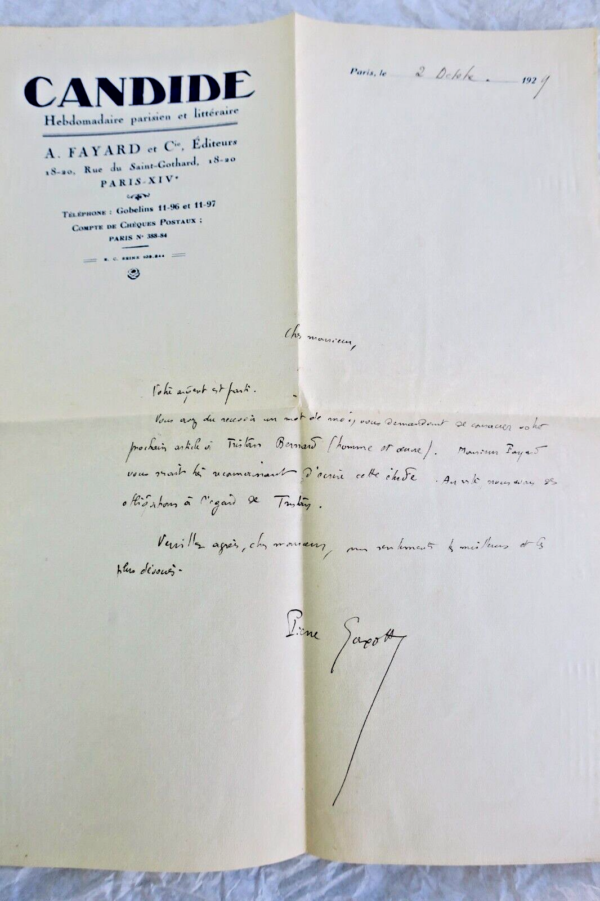 CANDIDE
Hebdomadaire parisien et littéraire
A. FAYARD et Cie, Éditeurs
18-20, Rue du Saint-Gothard, 18-20
PARIS-XIVe
TÉLÉPHONE : Gobelins 11-96 et 11-97
COMPTE DE CHÈQUES POSTAUX :
PARIS N° 388-84
R. C. SEINE
Paris, le 2 Octobre. 1929
Cher monsieur,
Votre argent est parti.
Vous avez dû recevoir un mot de moi, vous demandant de consacrer votre
prochain article à Tristan Bernard (homme et œuvre). Monsieur Fayard
vous serait très reconnaissant d'écrire cette étude. nous avons des
obligations à l'égard de Tristan.
Veuillez agréer, cher monsieur, mes sentiments les meilleurs et les
plus dévoués.
Pierre Gaxotte